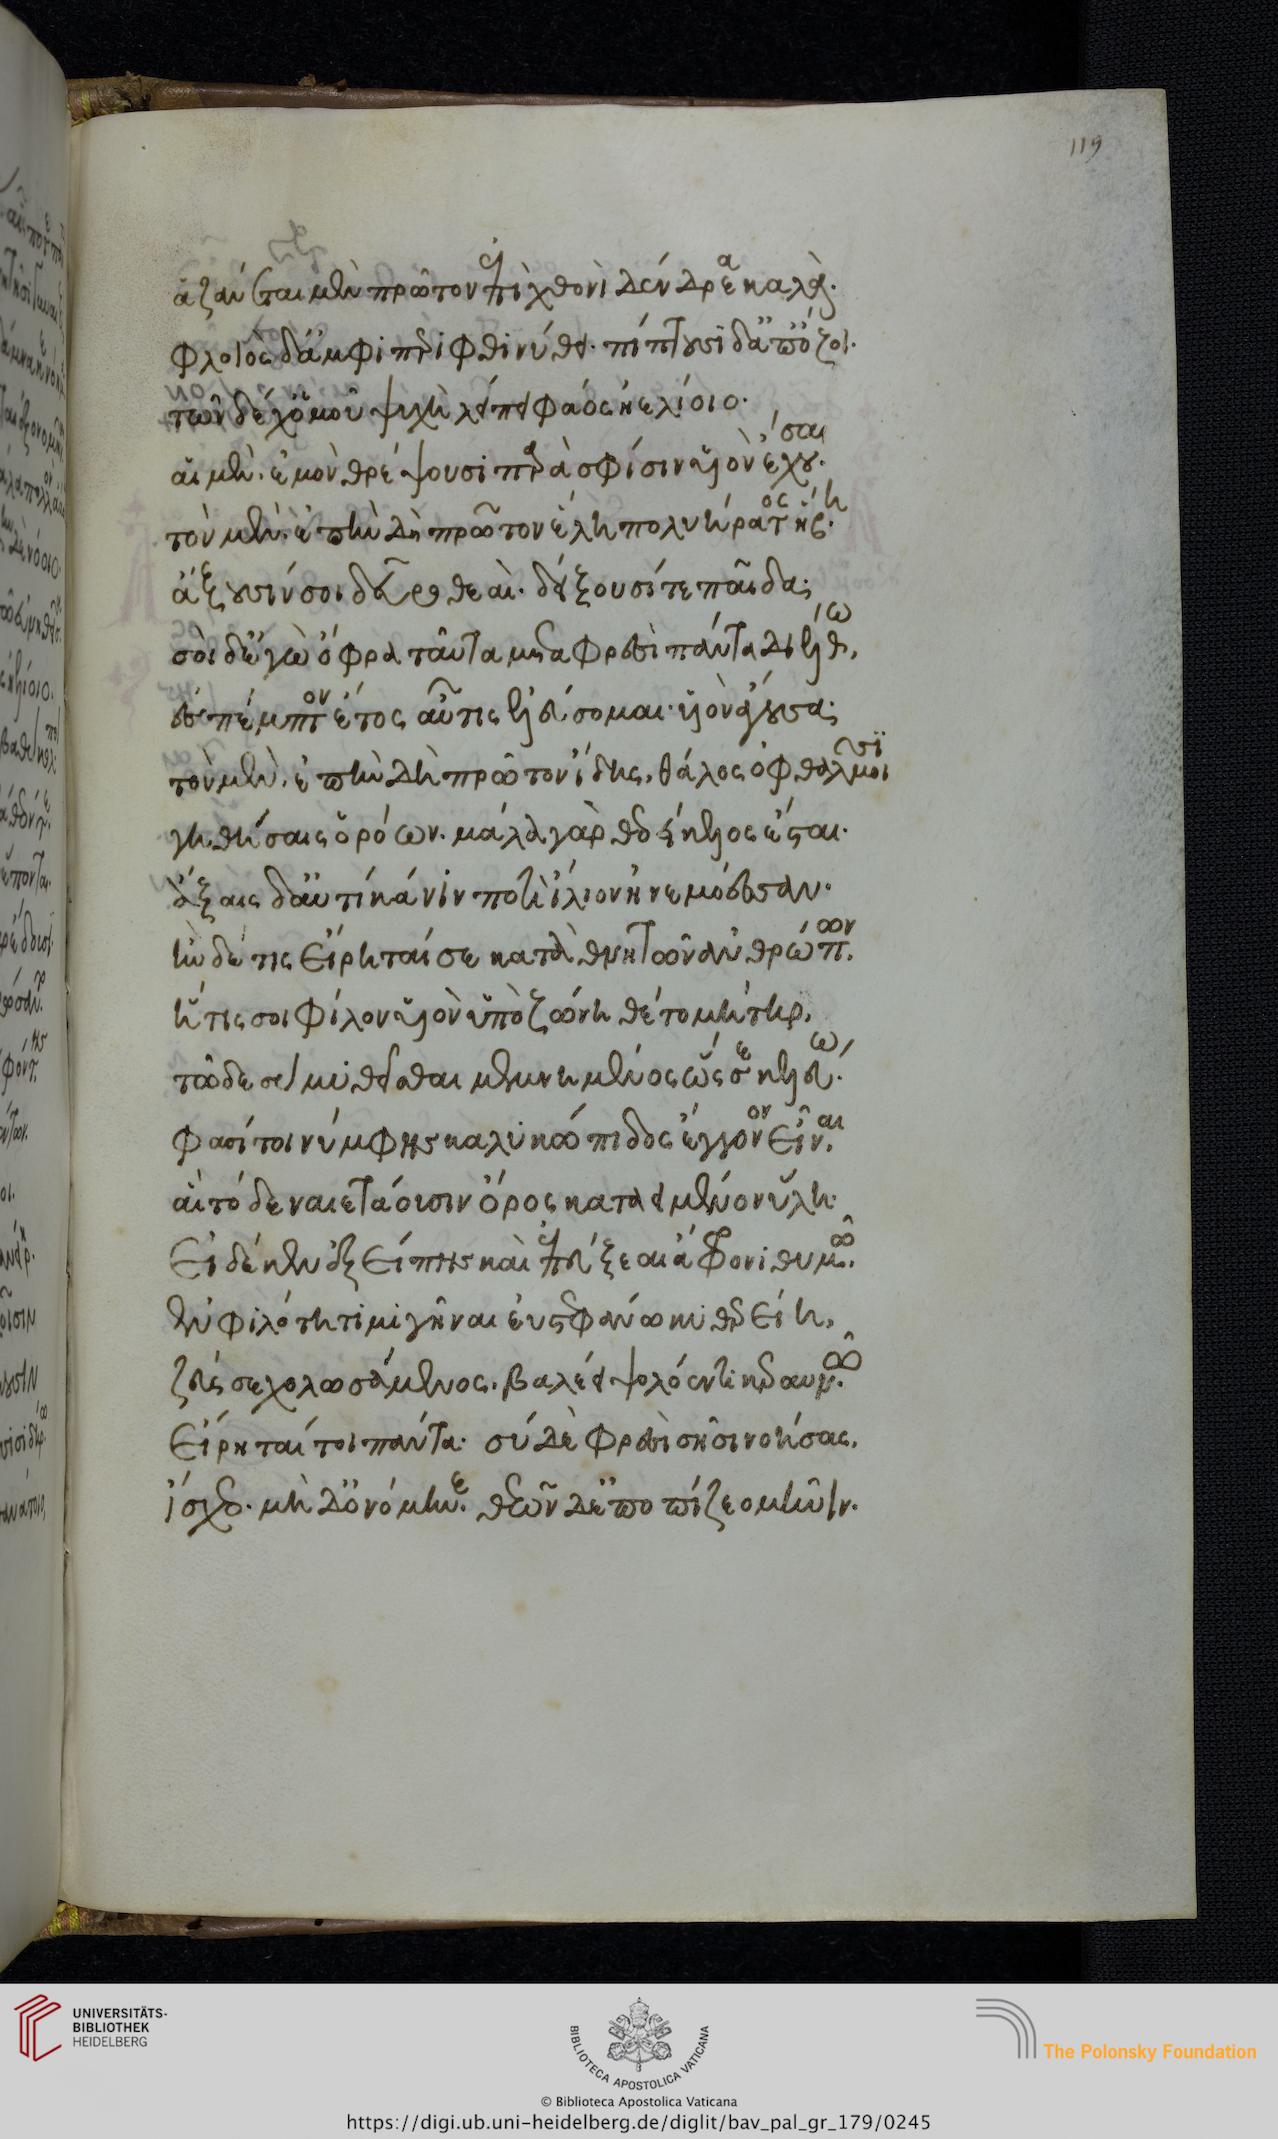 119
ἀζάνεται μὲν πρῶτον ἐπὶ χθονὶ δένδρεα καλά.
φλοιὸς δ' ἀμφιπεριφθινύθει. πίπτουσι δ' ἄπ' ὄζοι.
τῶν δέ χ' ὁμοῦ ψυχὴ λείπει φάος ἠελίοιο.
αἱ μὲν ἐμὸν θρέψουσι παρὰ σφίσιν υἱὸν ἔχουσαι.
τὸν μὲν ἐπὴν δὴ πρῶτον ἕλῃ πολυήρατος ἥβη.
ἄξουσίν σοι δεῦρο θεαὶ. δείξουσί τε παῖδα.
σοὶ δ' ἐγὼ ὄφρα ταῦτα μετὰ φρεσὶ πάντα διέλθω,
ἐς πέμπτον ἔτος αὖτις ἐλεύσομαι υἱὸν ἄγουσα.
τὸν μὲν ἐπὴν δὴ πρῶτον ἴδῃς, θάλος ὀφθαλμοῖσι
γηθήσαις ὁρόων. μάλα γὰρ θεοείκελος ἔσται.
ἄξαις δ' αὐτίκα νιν ποτὶ ἴλιον ἠνεμόεσσαν.
ἢν δέ τις εἴρηταί σε καταθνητῶν ἀνθρώπων.
ἥτις σοι φίλον υἱὸν ὑπὸ ζώνῃ θέτο μήτηρ,
τῷ δε σὺ μυθεῖσθαι μεμνημένος ὥς σε κελεύω.
φασί τοι νύμφης καλυκώπιδος ἔκγονον εἶναι.
αἳ τόδε ναιετάουσιν ὄρος καταειμένον ὕλῃ.
εἰ δέ κεν ἐξείπῃς καὶ ἐπεύξεαι ἄφρονι θυμῷ.
ἐν φιλότητι μιγῆναι ἐυστεφάνῳ κυθερείῃ,
ζεύς σε χολωσάμενος. βαλέει ψολόεντι κεραυνῷ.
εἴρηταί τοι πάντα. σὺ δὲ φρεσὶ σῇσι νοήσας.
ἴσχεο. μὴ δ' ὀνόμηνε. θεῶν δ' ἐποπίζεο μῆνιν.
UNIVERSITÄTS-
BIBLIOTHEK
HEIDELBERG
BIBLIOTECA APOSTOLICA VATICANA
© Biblioteca Apostolica Vaticana
The Polonsky Foundation
https://digi.ub.uni-heidelberg.de/diglit/bav_pal_gr_179/0245